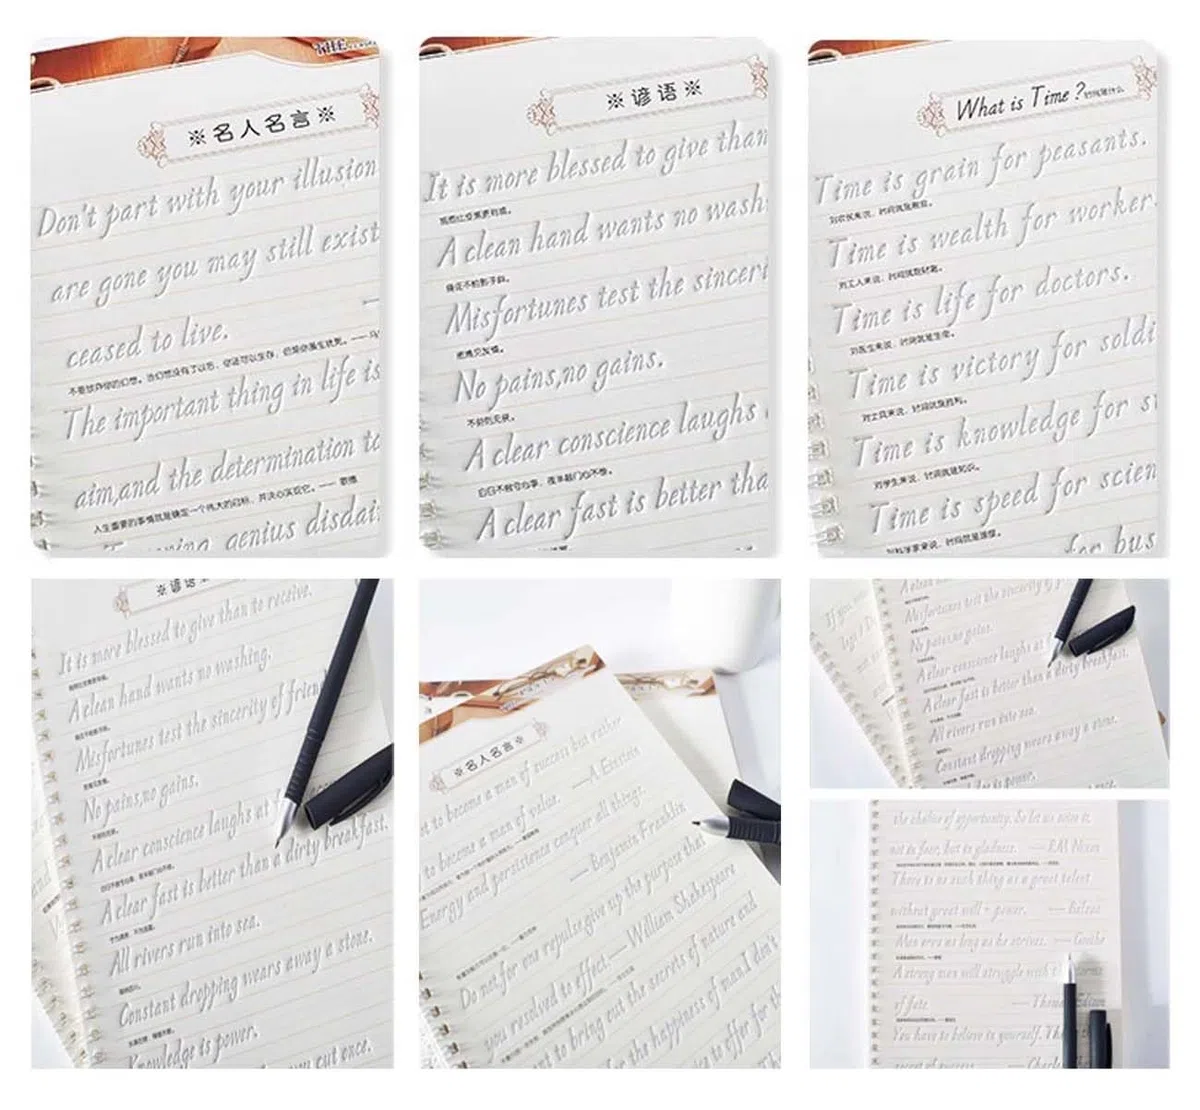 THE
※名人名言※
Don't part with your illusion
are gone you may still exist
ceased to live.
不要放弃你的幻想。当幻想没有了以后，你还可以生存，但是你虽生犹死。——马
The important thing in life is
aim,and the determination to
人生重要的事情就是确定一个伟大的目标，并决心实现它。——歌德
genius disdai
※谚语※
It is more blessed to give than
施恩比受惠更有福。
A clean hand wants no wash
身正不怕影子斜。
Misfortunes test the sinceri
患难见友情。
No pains,no gains.
不劳则无获。
A clear conscience laughs
白日不做亏心事，夜半敲门心不惊。
A clear fast is better tha
What is Time?时间是什么
Time is grain for peasants.
对农民来说，时间就是粮食。
Time is wealth for worker
对工人来说，时间就是财富。
Time is life for doctors.
对医生来说，时间就是生命。
Time is victory for soldi
对士兵来说，时间就是胜利。
Time is knowledge for s
对学生来说，时间就是知识。
Time is speed for scien
对科学家来说，时间就是速度。
for bus
※谚语※
It is more blessed to give than to receive.
A clean hand wants no washing.
Misfortunes test the sincerity of frien
No pains,no gains.
A clear conscience laughs at
A clear fast is better than a dirty breakfast.
All rivers run into sea.
Constant dropping wears away a stone.
Knowledge is power.
cut once.
※名人名言※
to become a man of success but rather
to become a man of value. —A Einstein
Energy and persistence conquer all things.
—Benjamin Franklin
Do not,for one repulse,give up the purpose that
you resolved to effect.—William Shakespeare
to bring out the secrets of nature and
for the happiness of man.I don't
to offer for th
If you
Misfortunes test the sincerity of
No pains,no gains.
A clear conscience laughs at
A clear fast is better than a dirty breakfast.
All rivers run into sea.
Constant dropping wears away a stone.
is power.
the shelter of opportunity. So let us seize it,
not in fear, but in gladness. —RM Nixon
There is no such thing as a great talent
without great will - power. —Balzac
Man errs as long as he strives. —Goethe
A strong man will struggle with storms
of fate. —Thomas Edison
You have to believe in yourself. Th
secret of success. —Charl